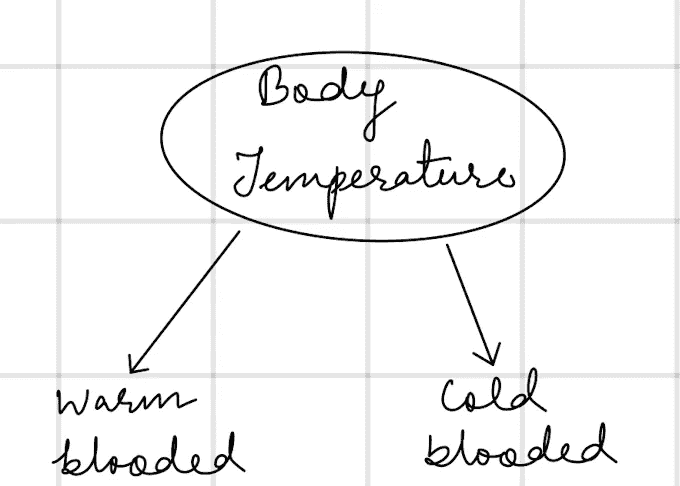 Body
Temperature
Warm
blooded
Cold
blooded